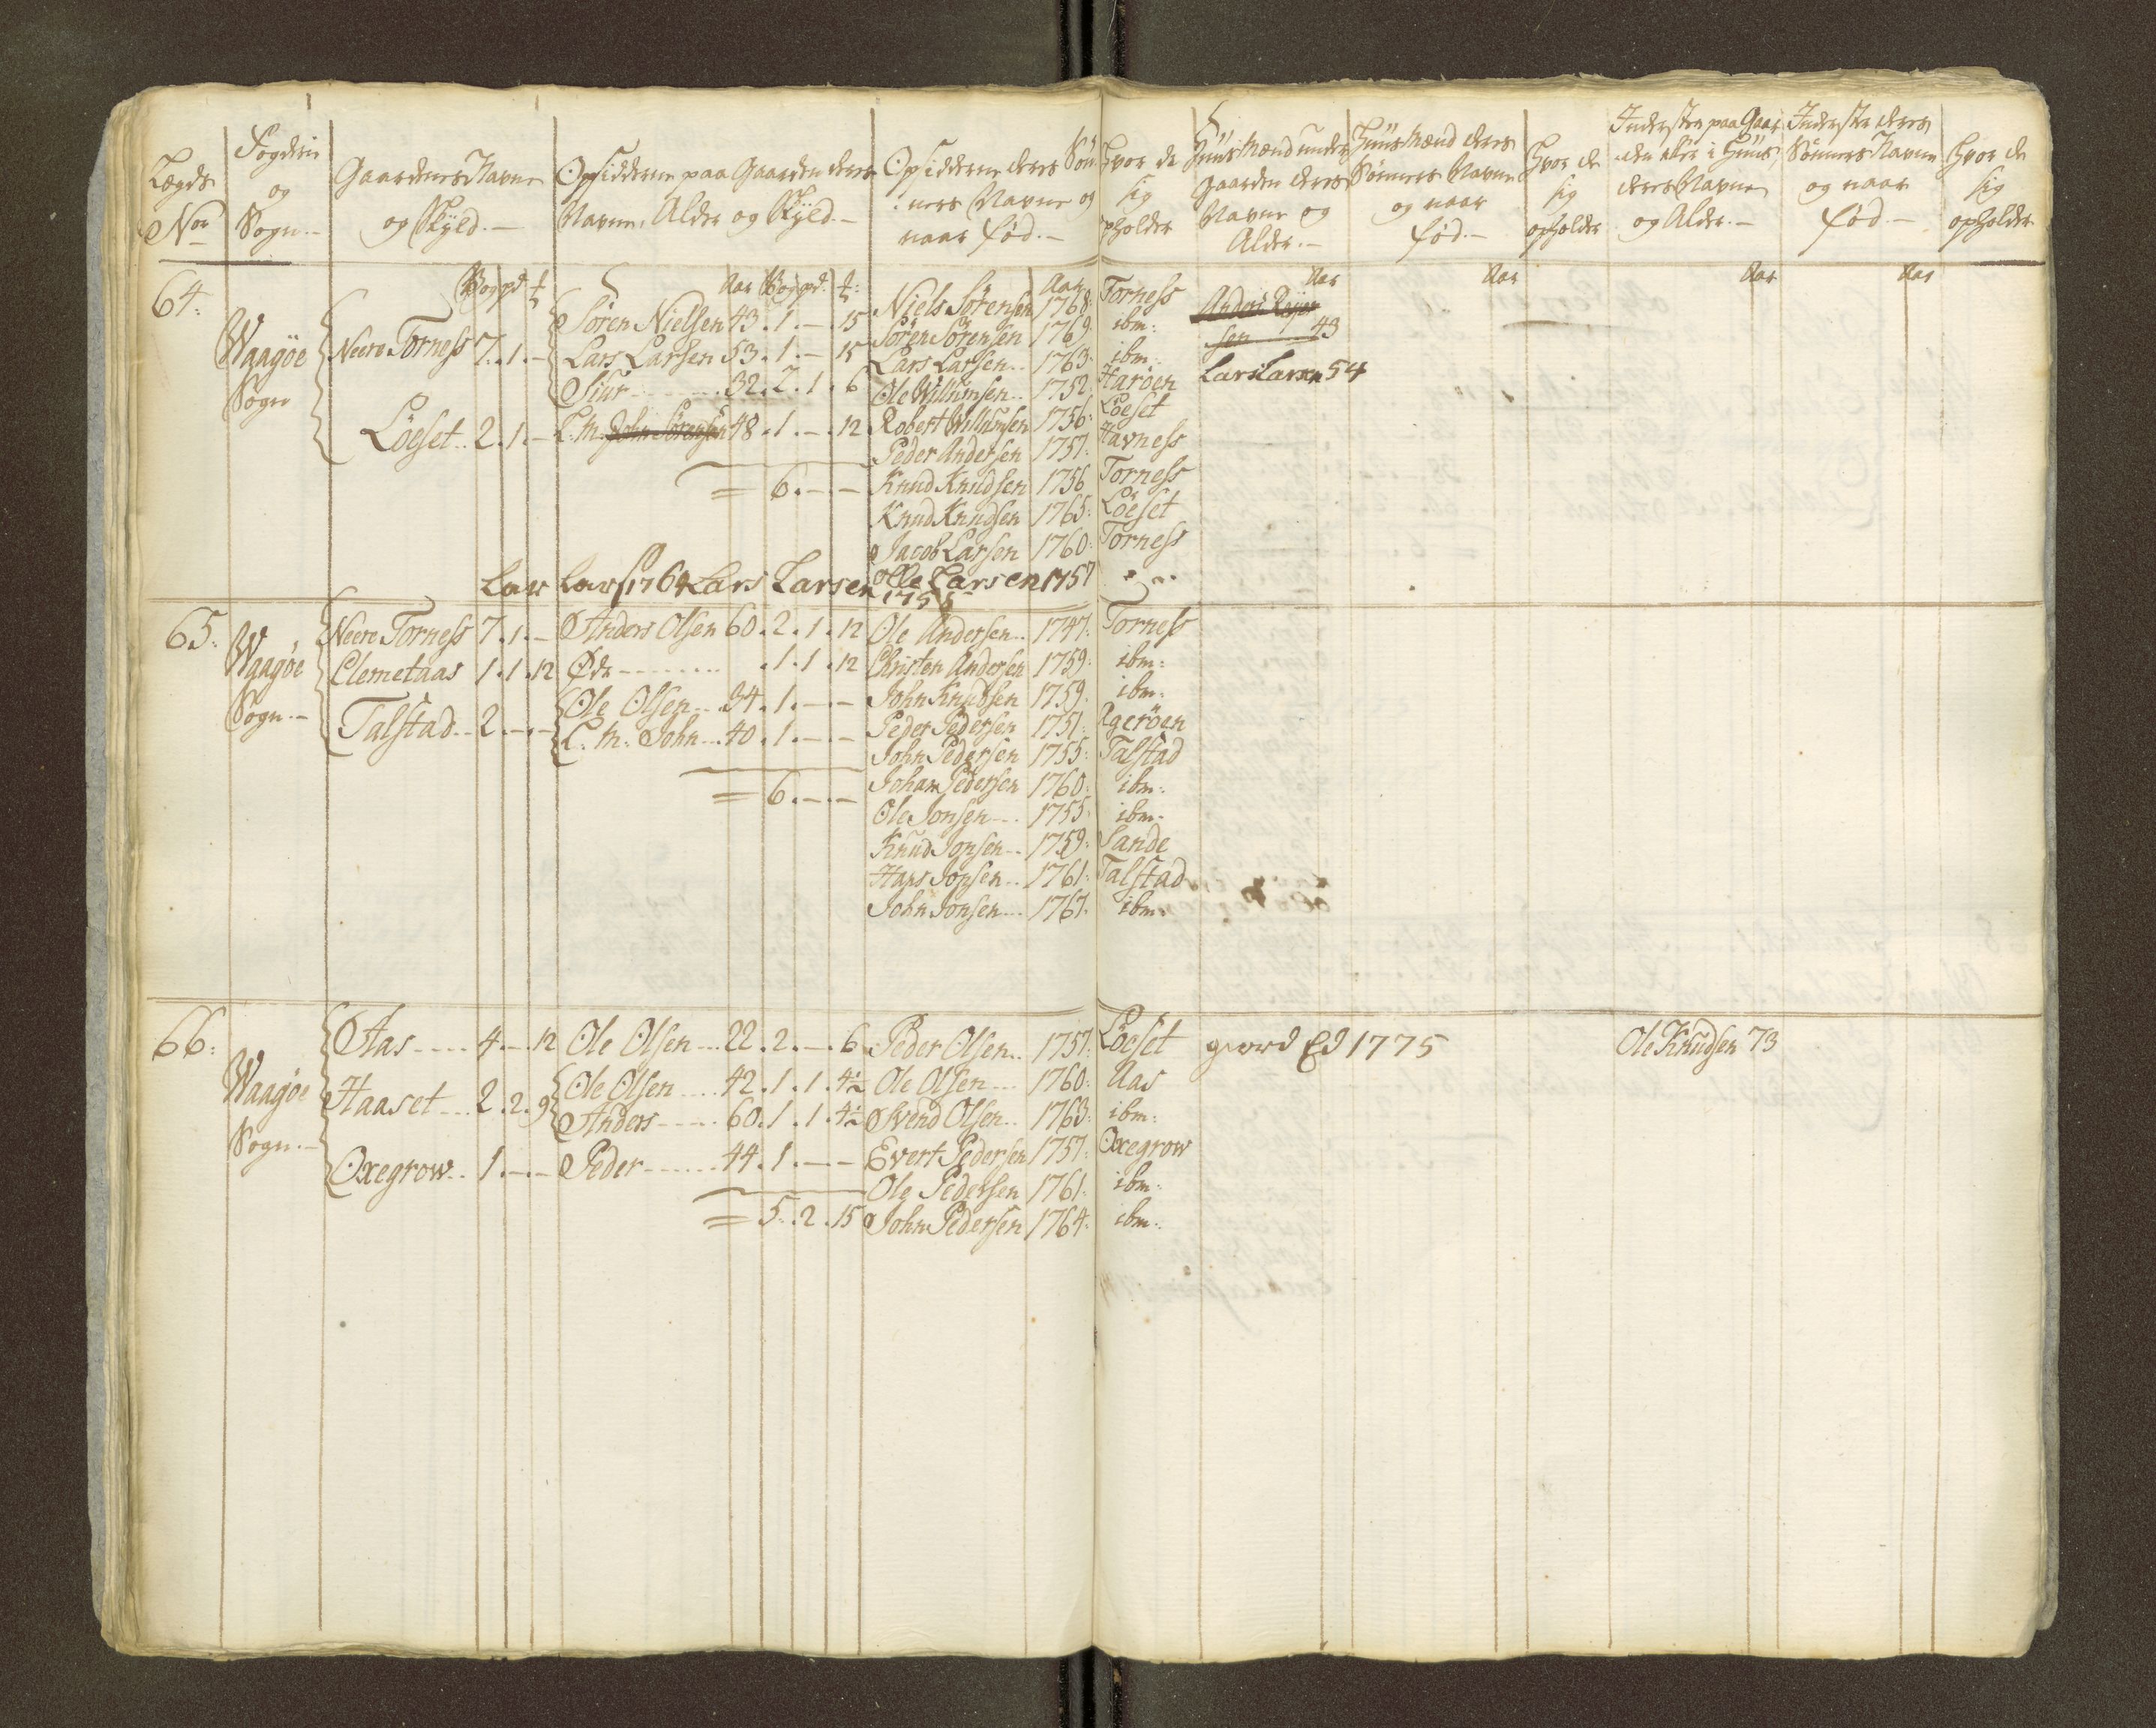 Lægds No
Fogderie og Sogn.-
Gaardenes Navne og Skyld.-
Opsidderne paa Gaarden deres Navne, Alder og Skyld.-
Opsidderne deres Sönners Navne og naar fød.-
Hvor de sig opholder
Huusmænd under Gaarden deres Navne og Alder.-
Huusmænd deres Sønners Navne og naar fød.-
Hvor de sig opholder
Inderster paa Gaarden eller i Huus, deres Navne og Alder.-
Inderster deres Sønners Navne og naar fød.-
Hvor de sig opholder
Aar Aar Aar Aar Aar Aar
64:
Waagöe Sogn
Neere Torness 7.1.-
Söeren Nielsen 43.1.-.15 Niels Sörensen 1768: Torness
Sören Sörensen 1769: ibm:
Anders sen 43
Lars Larsen 53.1.-.15 Lars Larsen.. 1763: ibm:
Lars Larsen 54
Siur 32.2.1.6 Ole Willumsen.. 1752: Haröen
Löeset.. 2.1.- L: M: John Sörensen 48.1.-.12 Robert Willumsen 1756: Löeset
Peder Andersen 1757: Havness
= 6.-.- Knud Knudsen 1756 Torness
Knud Knudsen 1765: Löeset
Jacob Larsen 1760: Torness
Lar Lars 1764 Lars Larsen 1755 Olle Larsen 1757
65:
Waagöe Sogn.-
Neere Torness 7.1.- Anders Olsen 60.2.1.12 Ole Andersen.. 1747: Torness
Clemetaas 1.1.12 Øde .1.1.12 Christen Andersen 1759: ibm:
Talstad.. 2.-.- Ole Olsen 34.1.-.- John Knudsen 1759: ibm:
L: M: John 40.1.-.- Peder Pedersen 1751: Ageröen
John Pedersen 1755: Talstad
= 6.-.- Johan Pedersen 1760: ibm:
Ole Jonsen 1755: ibm:
Knud Jonsen.. 1759: Sande
Hans Jonsen.. 1761: Talstad
John Jonsen 1767: ibm:
66:
Waagöe Sogn.-
Aas 4.-.12 Ole Olsen 22.2.-.6 Peder Olsen.. 1757: Löeset giord Ed 1775 Ole Knudsen 73
Haaset 2.2.9 Ole Olsen 42.1.1.4½ Ole Olsen 1760: Aas
Anders 60.1.1.4½ Svend Olsen.. 1763: ibm:
Oxegrow.. 1.-.- Peder 44.1.-.- Evert Pedersen 1757: Oxegrow
Ole Pedersen 1761: ibm:
= 5.2.15 John Pedersen 1764: ibm: